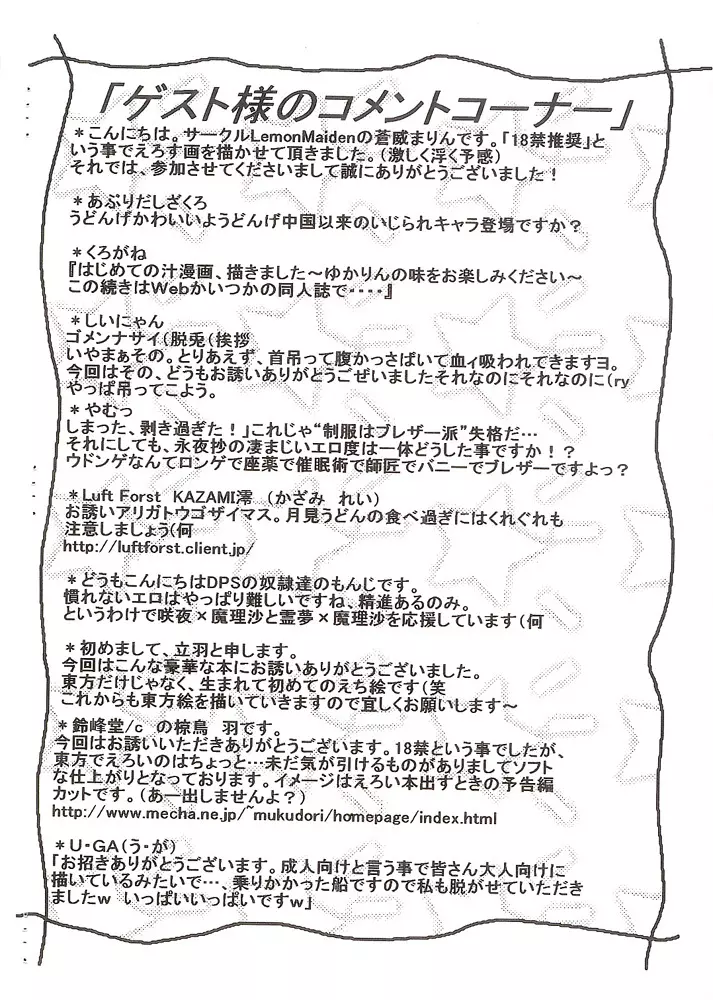 「ゲスト様のコメントコーナー」
＊こんにちは。サークルLemonMaidenの蒼威まりんです。「18禁推奨」と
いう事でえろす画を描かせて頂きました。（激しく浮く予感）
それでは、参加させてくださいまして誠にありがとうございました！
＊あぶりだしざくろ
うどんげかわいいようどんげ中国以来のいじられキャラ登場ですか？
＊くろがね
『はじめての汁漫画、描きました～ゆかりんの味をお楽しみください～
この続きはＷebかいつかの同人誌で・・・・』
＊しいにゃん
ゴメンナサイ(脱兎(挨拶
いやまぁその。とりあえず、首吊って腹かっさばいて血ィ吸われてきますヨ。
今回はその、どうもお誘いありがとうごぜいましたそれなのにそれなのに(ry
やっぱ吊ってこよう。
＊やむっ
しまった、剥き過ぎた！」これじゃ“制服はブレザー派”失格だ…
それにしても、永夜抄の凄まじいエロ度は一体どうした事ですか！？
ウドンゲなんてロンゲで座薬で催眠術で師匠でバニーでブレザーですよっ？
＊Luft Forst　KAZAMI澪　（かざみ　れい）
お誘いアリガトウゴザイマス。月見うどんの食べ過ぎにはくれぐれも
注意しましょう(何
http://luftforst.client.jp/
＊どうもこんにちはDPSの奴隷達のもんじです。
慣れないエロはやっぱり難しいですね、精進あるのみ。
というわけで咲夜×魔理沙と霊夢×魔理沙を応援しています(何
＊初めまして、立羽と申します。
今回はこんな豪華な本にお誘いありがとうございました。
東方だけじゃなく、生まれて初めてのえち絵です(笑
これからも東方絵を描いていきますので宜しくお願いします～
＊鈴峰堂/c　の椋鳥　羽です。
今回はお誘いいただきありがとうございます。18禁という事でしたが、
東方でえろいのはちょっと…未だ気が引けるものがありましてソフト
な仕上がりとなっております。イメージはえろい本出すときの予告編
カットです。（あー出しませんよ？）
http://www.mecha.ne.jp/~mukudori/homepage/index.html
＊Ｕ・GA(う・が)
「お招きありがとうございます。成人向けと言う事で皆さん大人向けに
描いているみたいで…、乗りかかった船ですので私も脱がせていただき
ましたｗ　いっぱいいっぱいですｗ」